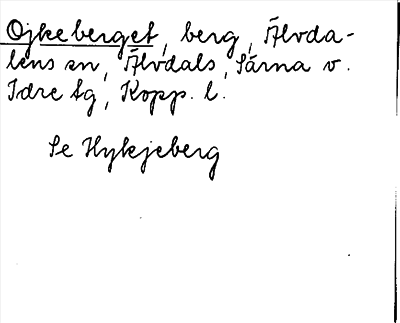 Ojkeberget, berg, Älvda-
lens sn, Älvdals, Särna v.
Idre tg, Kopp. l.
Se Hykjeberg